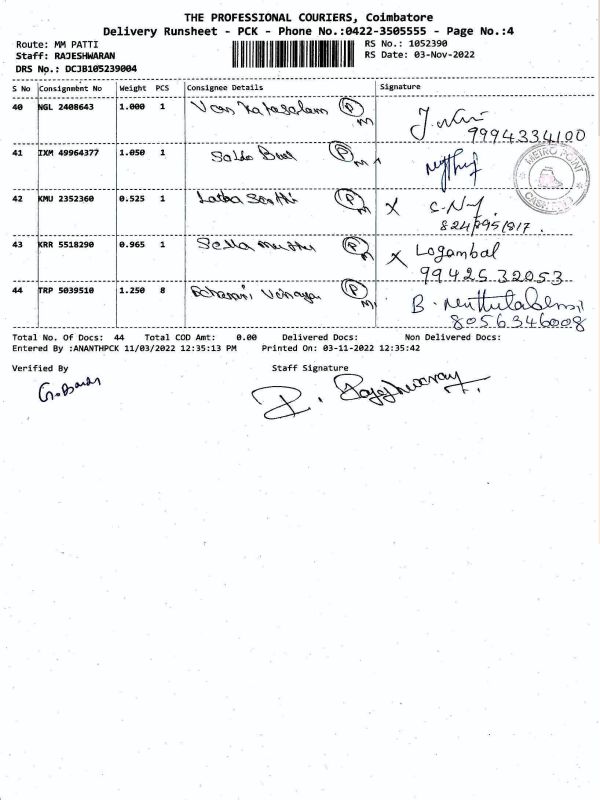 THE PROFESSIONAL COURIERS, Coimbatore
Delivery Runsheet - PCK - Phone No.:0422-3505555 - Page No.:4
Route: MM PATTI
RS No.: 1052390
Staff: RAJESHWARAN
RS Date: 03-Nov-2022
DRS No.: DCJB105239004
S No Consignment No Weight PCS Consignee Details Signature
40 NGL 2408643 1.000 1 P M
9994334100
41 IXM 49964377 1.050 1 P M
METRO POINT
42 KMU 2352360 0.525 1 P M X
43 KRR 5518290 0.965 1 P M X Logambal
9942532053
44 TRP 5039510 1.250 8 P M B.
8056346008
Total No. Of Docs: 44 Total COD Amt: 0.00 Delivered Docs: Non Delivered Docs:
Entered By :ANANTHPCK 11/03/2022 12:35:13 PM Printed On: 03-11-2022 12:35:42
Verified By Staff Signature